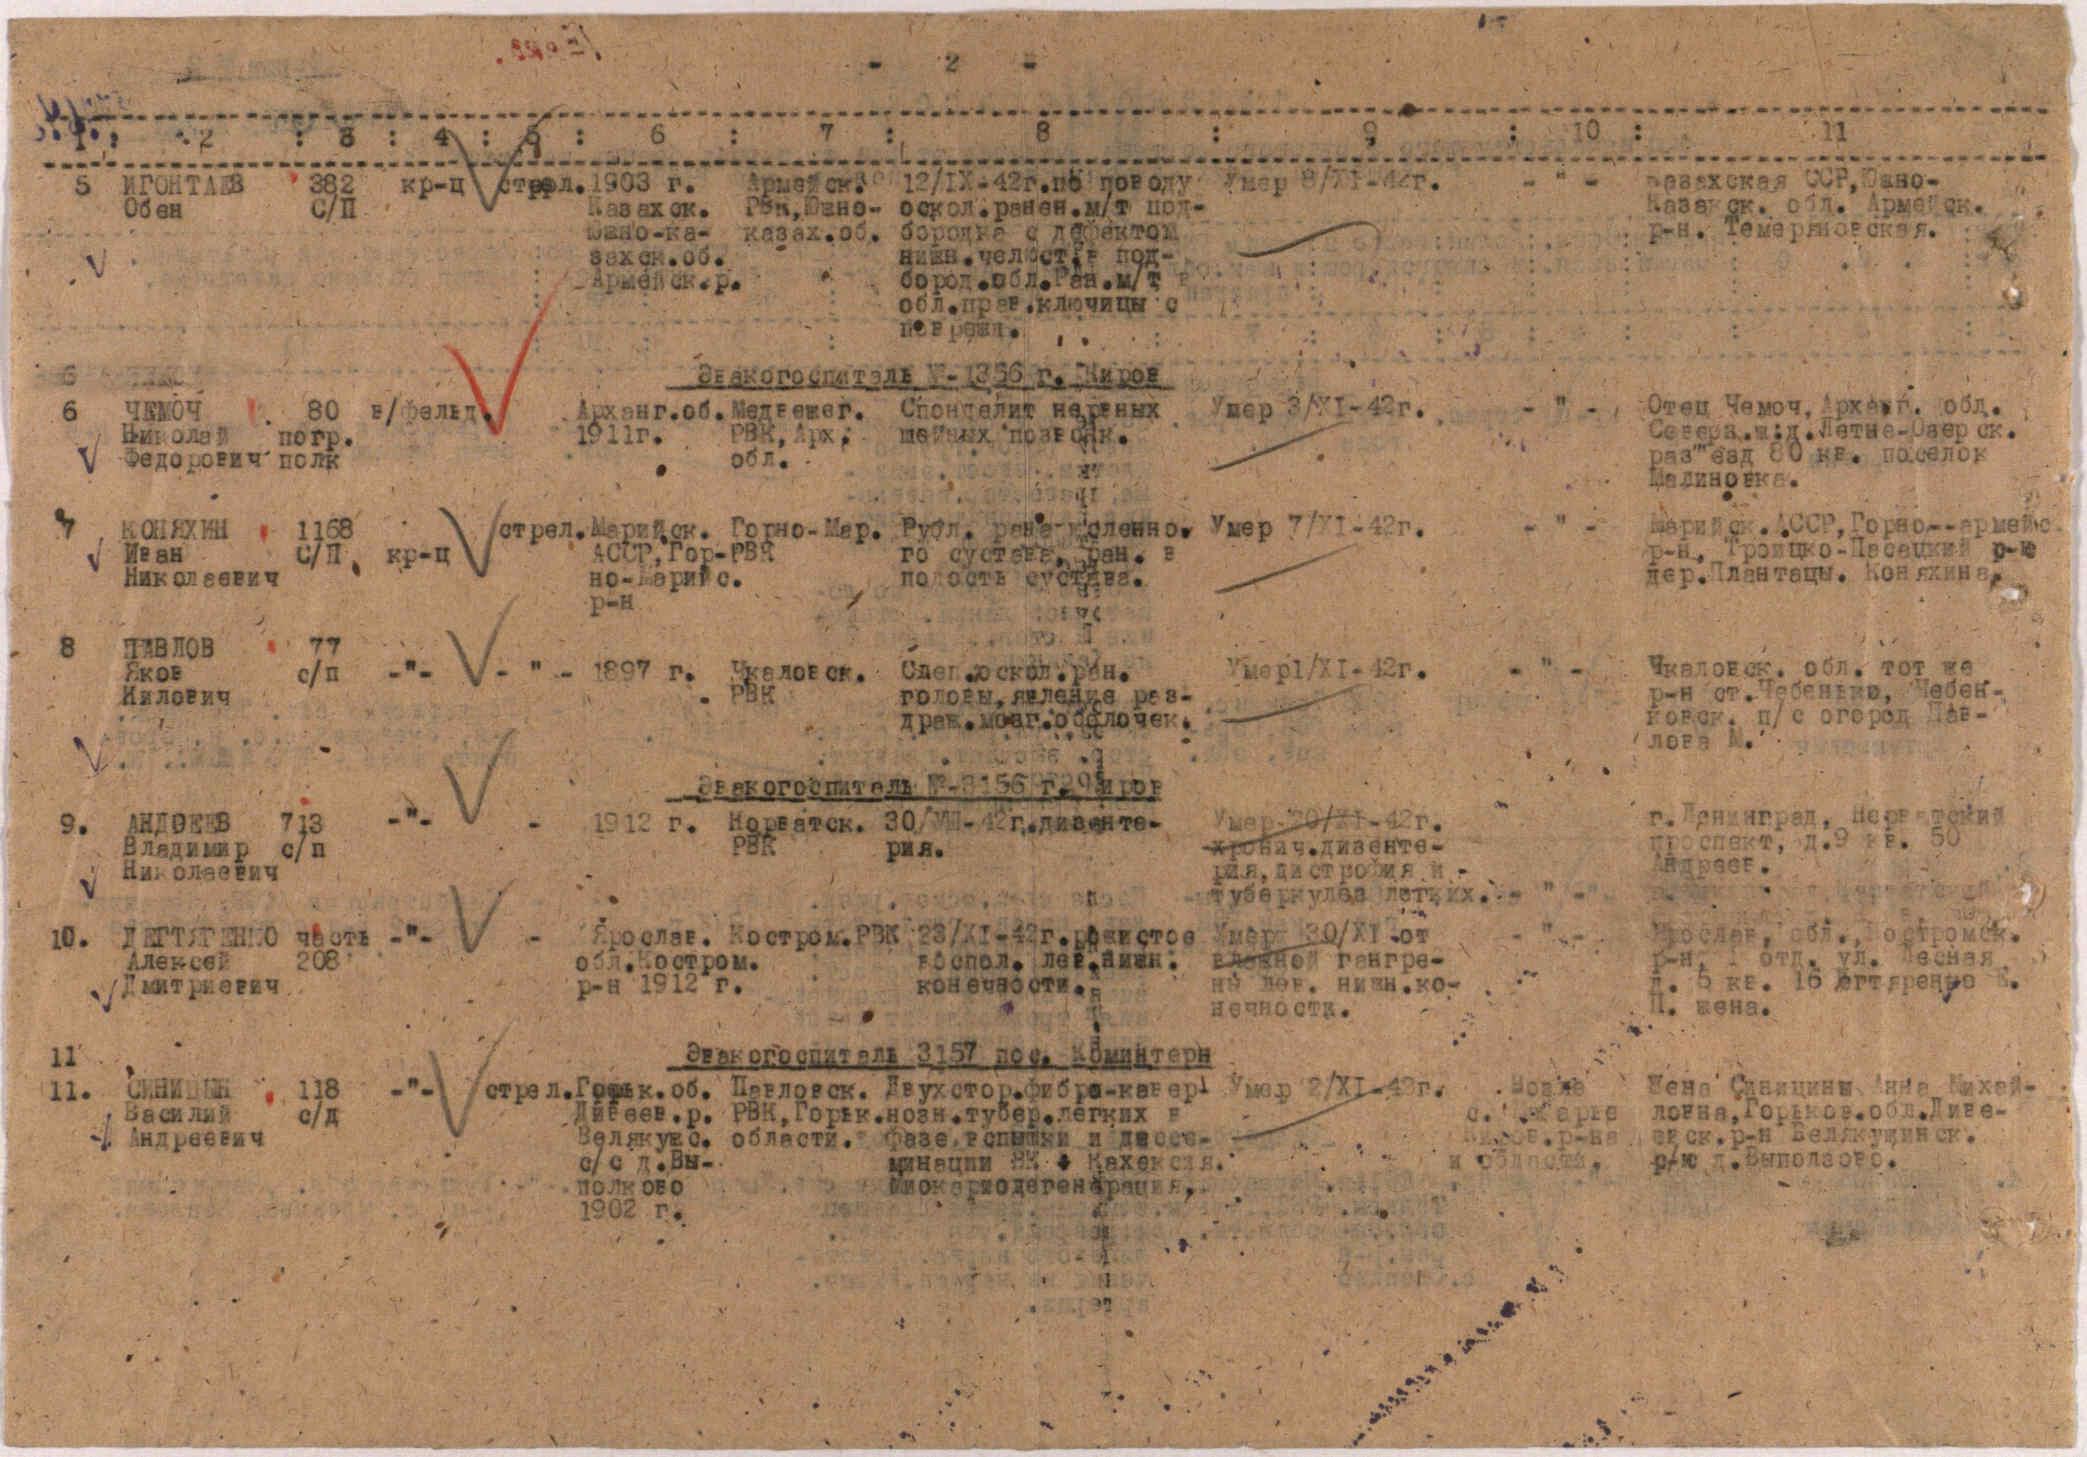 - 2 -
1 : 2 : 3 : 4 : 5 : 6 : 7 : 8 : 9 : 10 : 11
5 ИГОНТАЕВ 382 кр-ц стрел. 1903 г. Армейск. 12/IX-42г.по поводу Умер 8/XI-42г. - " - Казахская ССР,Южно-
Обен С/П Казахск. РВК,Южно- оскол.ранен.м/т под- Казахск. обл. Армейск.
Южно-ка- казах.об. бородка с дефектом р-н. Темеряновская.
захск.об. нижн.челюст.в под-
Армейск.р. бород.обл.Ран.м/т в
обл.прав.ключицы с
поврежд.
6
Эвакогоспиталь №-1356 г. Киров
6 ЧЕМОЧ 80 в/фельд. Арханг.об. Медвежег. Спондилит нервных Умер 3/XI-42г. - " - Отец Чемоч, Арханг. обл.
Николай погр. 1911г. РВК, Арх. шейных позвонк. Северн.ж.д.Летне-Озерск.
Федорович полк обл. раз"езд 80 кв. поселок
Малиновка.
7 КОНЯХИН 1168 стрел. Марийск. Горно-Мар. Рубл. рана коленно- Умер 7/XI-42г. - " - Марийск.АССР,Горно--армейс
Иван С/П кр-ц АССР,Гор- РВК го сустава, ран. в р-н, Троицко-Пасацкий р-ю
Николаевич но-Марийс. полость сустава. дер.Плантацы. Коняхина,
р-н
8 ПАВЛОВ 77
Яков с/п -"- - " - 1897 г. Чкаловск. Слеп.оскол.ран. Умер1/XI-42г. - " - Чкаловск. обл. тот же
Нилович РВК головы,явление раз- р-н ст.Чебеньки, Чебен-
драж.мозг.оболочек. ковск. п/с огород Пав-
лова М.
Эвакогоспиталь №-3156 г. Киров
9. АНДРЕЕВ 713 -"- - 1912 г. Норватск. 30/VIII-42г.дизенте- Умер 20/XI-42г. г.Ленинград, Нарватский
Владимир с/п РВК рия. хронич.дизенте- проспект, д.9 кв. 50
Николаевич рия,дистрофия и Андреев.
туберкулез легких. - " -
10. ДЕГТЯРЕНКО часть -"- - Ярослав. Костром.РВК 23/XI-42г.рожистое Умер 30/XI от - " - Ярослав. обл., Костромск.
Алексей 208 обл.Костром. воспол. лев.нижн. влажной гангре- р-н, 1 отд. ул. Лесная
Дмитриевич р-н 1912 г. конечности. ны лев. нижн.ко- д. 5 кв. 16
нечности. П. жена.
11
Эвакогоспиталь 3157 пос. Коминтерн
11. СИНИЦЫН 118 -"- стрел. Горьк.об. Павловск. Двухстор.фибро-кавер Умер 2/XI-42г. Возле Жена Синицины Анна Михай-
Василий с/д Дивеев.р. РВК,Горьк. нозн.тубер.легких в с. Макарье ловна,Горьков.обл.Диве-
Андреевич Велякуш. области. фазе вспышки и диссе- Киров.р-на евск.р-н Велякушинск.
с/с д.Вы- минации ВК + Кахексия. и области. с/ю д.Выползово.
полково Миокардиодегенерация,
1902 г.